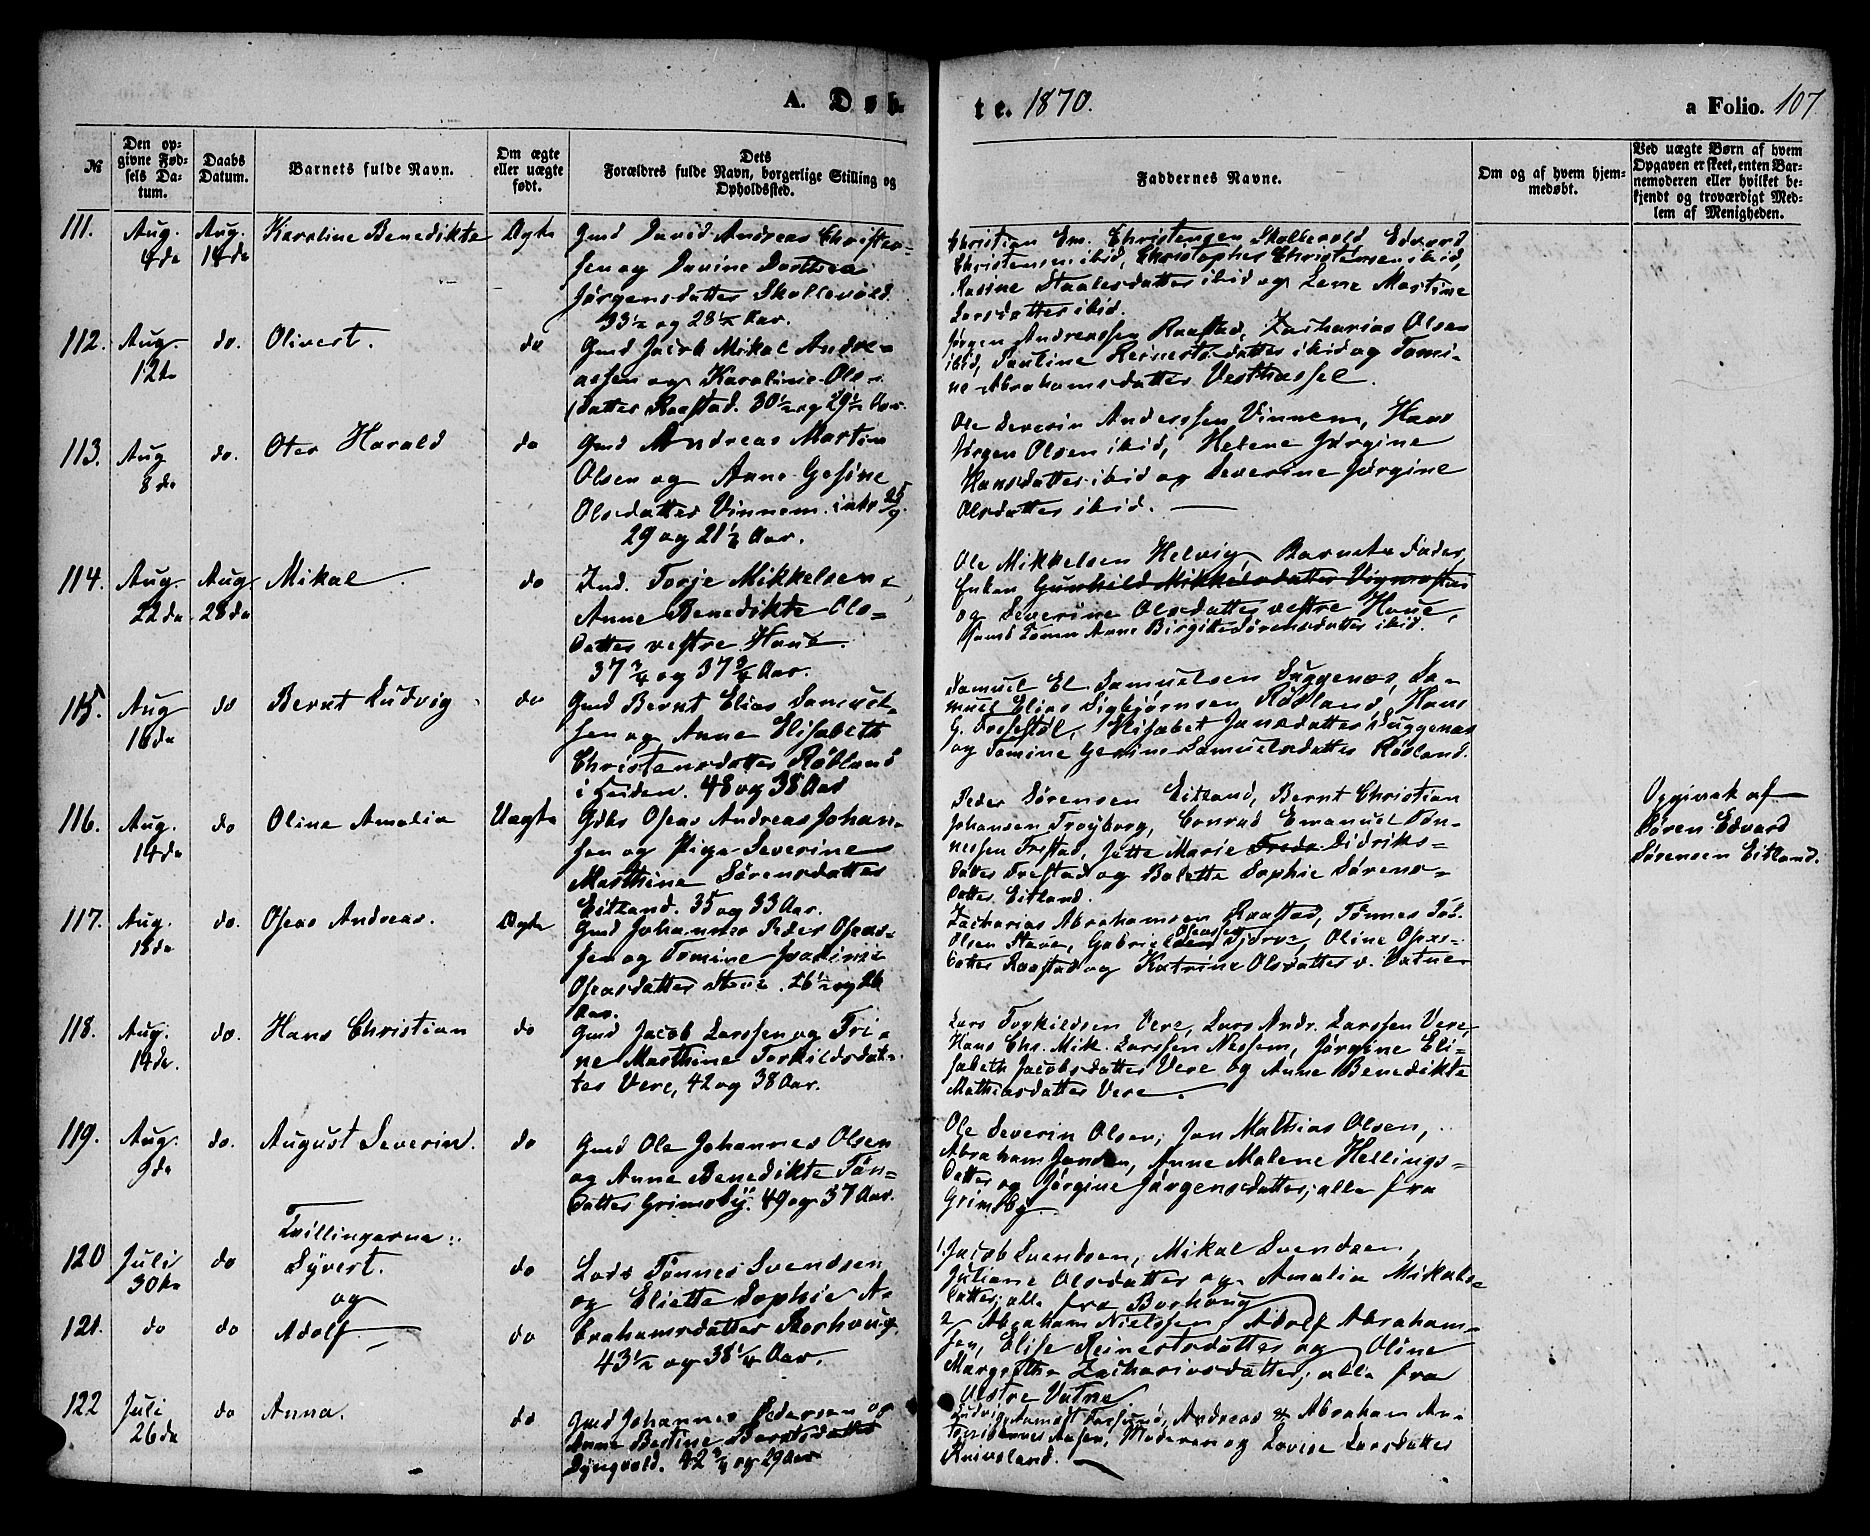 A. Døb-
te. 1870.
a Folio. 107
№
Den op-
givne Fød-
sels Da-
tum.
Daabs
Datum.
Barnets fulde Navn.
Om ægte
eller uægte
født.
Dets
Forældres fulde Navn, borgerlige Stilling og
Opholdssted.
Faddernes Navne.
Om og af hvem hjem-
medøbt.
Ved uægte Børn af hvem
Opgaven er skeet, enten Bar-
nemoderen eller hvilket be-
kjendt og troværdigt Med-
lem af Menigheden.
111. Aug. 4de Aug. 14de Karoline Benedikte Ægte
Gmd David Andreas Christen-
sen og Davine Dorthea
Jørgensdatter Skollevold
33½ og 28½ Aar.
Christian Em. Christensen Skollevold, Edvard
Christensen ibid, Christopher Christensen ibid,
Rasine Staalesdatter ibid og Lene Martine
Larsdatter ibid.
112. Aug. 12te do. Olivert. do
Gmd Jacob Mikal Andre-
assen og Karoline Ols-
datter Raastad. 30½ og 29½ Aar.
Jørgen Andreassen Raastad, Zacharias Olsen
ibid, Pauline Reinertsdatter ibid og Tomi-
ne Abrahamsdatter Vesthassel.
113. Aug 8de do. Oter Harald do
Gmd Andreas Martin
Olsen og Anne Gesine
Olsdatter Vinnem.
29 og 21½ Aar.
Ole Severin Anderssen Vinnem, Hans
Jørgen Olsen ibid, Helene Jørgine
Hansdatter ibid og Severine Jørgine
Olsdatter ibid.
114. Aug. 22de Aug 28de Mikal do
Ind. Torje Mikkelsen,
Anne Benedikte Ols-
datter vestre Haue.
37¾ og 37¾ Aar.
Ole Mikkelsen Helvig, Barnets Fader,
Enken Gunhild Mikkelsdatter
og Severine Olsdatter vestre Haue,
Anne Birgitte Sørensdatter ibid.
115. Aug 16de do Bernt Ludvig do
Gmd Bernt Elias Samuel-
sen og Anne Elisabeth
Christensdatter Rødland
i Heiden. 48 og 38 Aar
Samuel El. Samuelsen Duggenas, Sa-
muel Elias Sigbjørnsen Rødland, Hans
G. Tossestøl, Elisabet Jansdatter Duggenas
og Tomine Gesine Samuelsdatter Rødland.
116. Aug. 14de do Oline Amalia Uægte
Gdbr Oseas Andreas Johan-
sen og Pige Severine
Marthine Sørensdatter
Eitland. 35 og 33 Aar.
Peder Sørensen Eitland, Bernt Christian
Johansen Trøyborg, Conrad Emanuel Tøn-
nessen Frestad, Jette Marie Didriks-
datter Frestad og Bolette Sophie Sørens-
datter Eitland.
Opgivet af
Søren Edvard
Sørensen Eitland.
117. Aug. 13de do. Oseas Andreas. Ægte
Gmd Johannes Peder Oseas-
sen og Tomine Joakime
Oseasdatter Stave. 26½ og 26
Aar.
Zacharias Abrahamsen Raastad, Tønnes Tob.
Olsen Stave, Gabriel Oseassen Tjørve, Oline Oseas-
datter Raastad og Katrine Olsdatter v. Vatne
118. Aug. 14de. do. Hans Christian do
Gmd Jacob Larssen og Tri-
ne Marthine Torkildsdat-
ter Vere, 42 og 38 Aar.
Lars Torkildsen Vere, Lars Andr. Larssen Vere,
Hans Chr. Mik. Larssen Nessem, Jørgine Eli-
sabeth Jacobsdatter Vere og Anne Benedikte
Mathiasdatter Vere.
119. Aug. 9de do. August Severin. do
Gmd Ole Johannes Olsen
og Anne Benedikte Tøn-
datter Grimsby. 49 og 37 Aar.
Ole Severin Olsen, Jan Mathias Olsen,
Abraham Jansen, Anne Malene Hellings-
datter og Jørgine Jørgensdatter, alle fra
Grimsby.
Tvillingerne:
120 Juli 30te do Syvert. do
og
121. do do Adolf do
Lods Tønnes Svendsen
og Eliette Sophie A-
brahamsdatter Borhoug.
43½ og 38¼ Aar.
1. Jacob Svendsen, Mikal Svendsen,
Juliane Olsdatter og Amalia Mikals-
datter, alle fra Borhoug
2. Abraham Nielssen, Adolf Abraham-
sen, Elise Reinertsdatter og Oline
Margrethe Zachariasdatter, alle fra
Vestre Vatne
122 Juli 26de do Anna. do
Gmd Johannes Pedersen og
Anne Bertine Berntsdatter
Dyngvold. 42¾ og 29 Aar
Ludvig Torjesen, Andreas & Abraham An-
Moderen og Lovise Larsdatter
Knivsland.